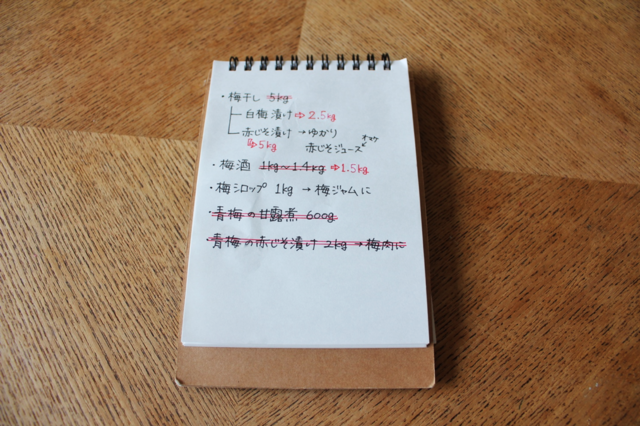 ・梅干し 5kg
白梅漬け ⇨ 2.5kg
赤じそ漬け → ゆかり
⇨ 5kg 赤じそジュース
・梅酒 1kg〜1.4kg ⇨ 1.5kg
・梅シロップ 1kg → 梅ジャムに
・青梅の甘露煮 600g
・青梅の赤じそ漬け 2kg → 梅肉に